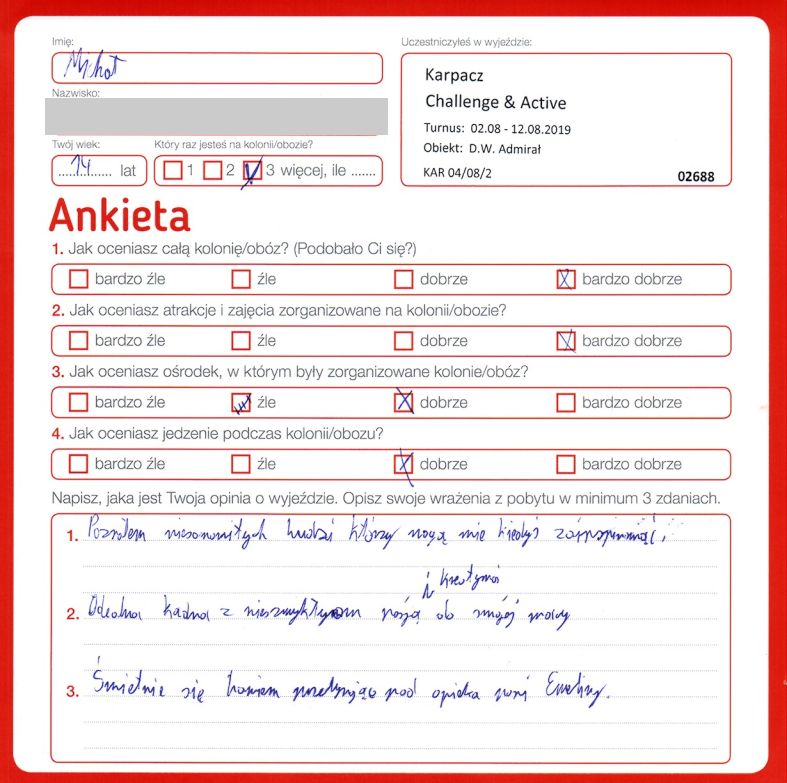 Imię:
Uczestniczyłeś w wyjeździe:
Michał
Karpacz
Challenge & Active
Turnus: 02.08 - 12.08.2019
Obiekt: D.W. Admirał
KAR 04/08/2
02688
Nazwisko:
Twój wiek:
Który raz jesteś na kolonii/obozie?
14 lat
1 2 3 więcej, ile .......
Ankieta
1. Jak oceniasz całą kolonię/obóz? (Podobało Ci się?)
bardzo źle źle dobrze bardzo dobrze
2. Jak oceniasz atrakcje i zajęcia zorganizowane na kolonii/obozie?
bardzo źle źle dobrze bardzo dobrze
3. Jak oceniasz ośrodek, w którym były zorganizowane kolonie/obóz?
bardzo źle źle dobrze bardzo dobrze
4. Jak oceniasz jedzenie podczas kolonii/obozu?
bardzo źle źle dobrze bardzo dobrze
Napisz, jaka jest Twoja opinia o wyjeździe. Opisz swoje wrażenia z pobytu w minimum 3 zdaniach.
1. Poznałem niesamowitych ludzi którzy mogą mnie kiedyś
i kreatywną
2. kadra z do swojej pracy
3. Świetnie się pod opieką pani Eweliny.